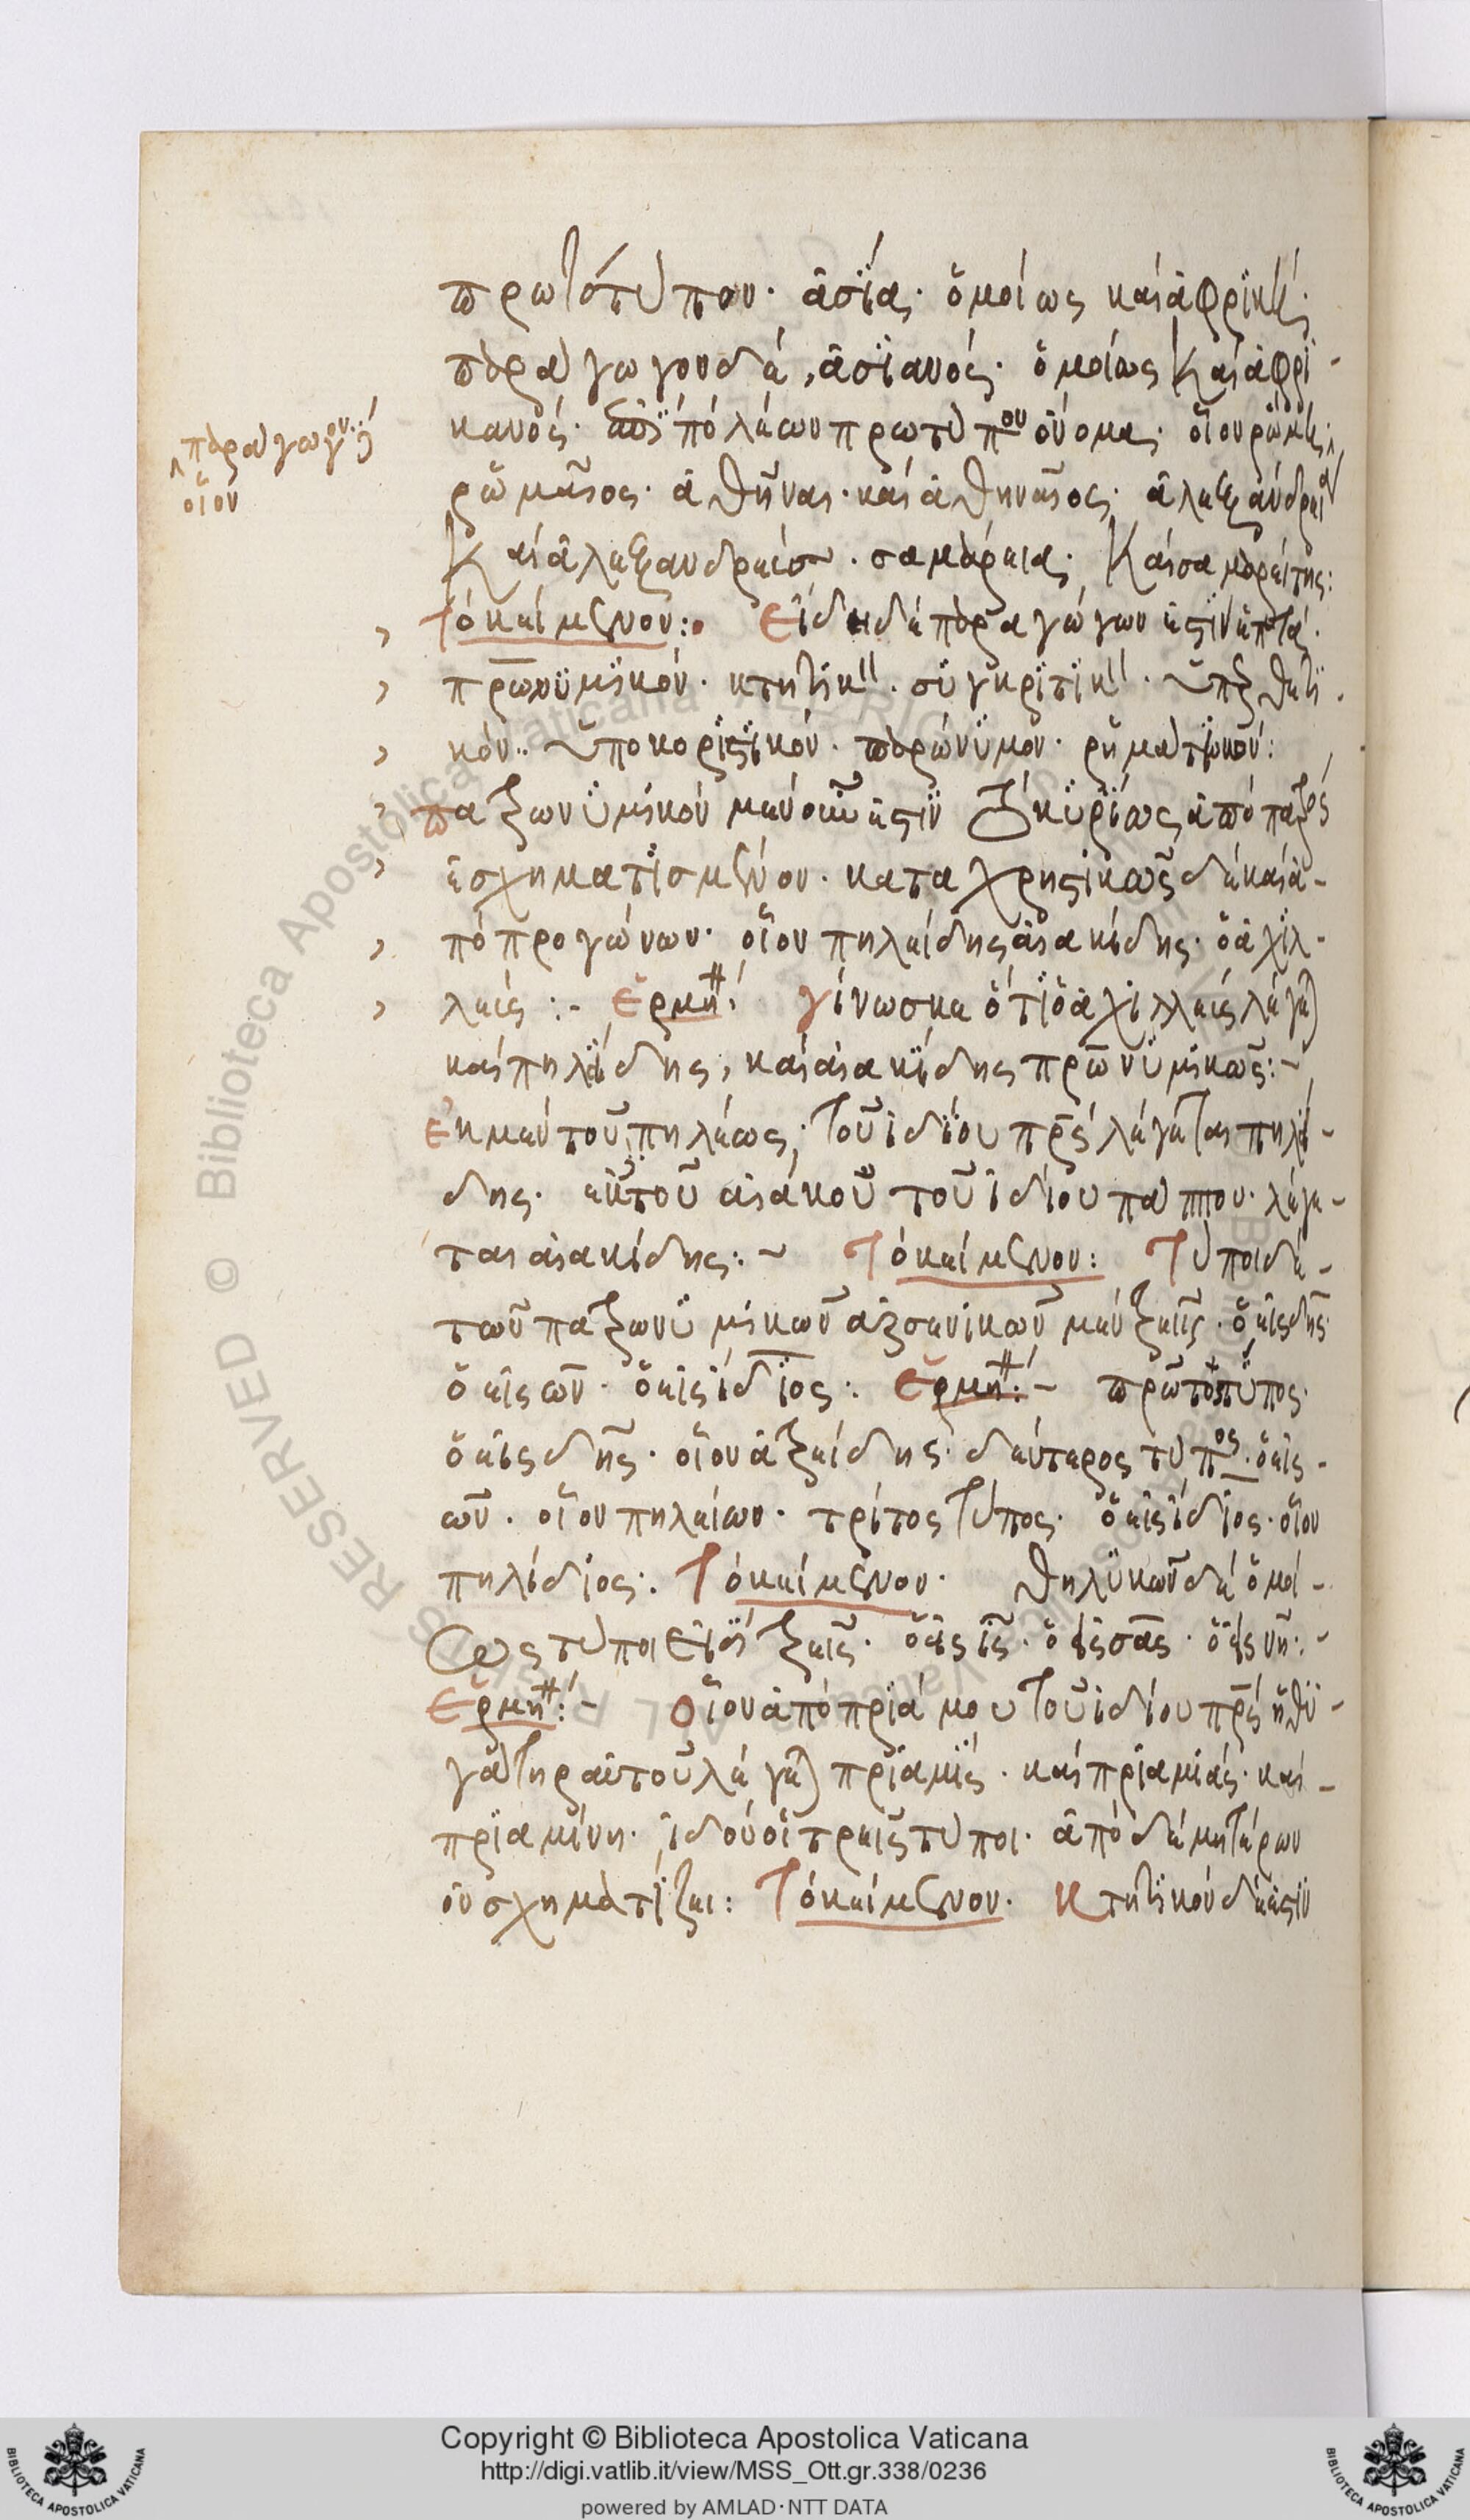 πρωτότυπον· ἀσία· ὁμοίως καὶ ἀφρική·
παράγωγον δὲ, ἀσιανός· ὁμοίως καὶ ἀφρι-
κανός· πόλεων πρωτυπου ὄνομα· οἷον ρώμη·
παράγωγον· οἷον
ρωμαῖος· ἀθῆναι· καὶ ἀθηναῖος· ἀλεξάνδρεια
καὶ ἀλεξανδρεὺς· σαμάρεια· καὶ σαμαρείτης:
Τὸ κείμενον: Εἴδη δὲ παραγώγων ἐστὶν ἑπτά·
πρωνυμικόν· κτητικ· συγκριτικ· ὑπερθετι-
κόν· ὑποκοριστικόν· παρώνυμον· ρηματικόν:
πατρωνυμικὸν μὲν οὖν ἐστὶν τὸ κυρίως ἀπὸ πατρὸς
ἐσχηματισμένον· καταχρηστικῶς δὲ καὶ ἀ-
πὸ προγόνων· οἷον πηλείδης αἰακίδης· ὁ ἀχιλ-
λεύς :- Ερμη γίνωσκε ὅτι ὁ ἀχιλλεὺς λέγεται
καὶ πηλίδης, καὶ αἰακίδης πρωνυμικῶς:-
Εκ μὲν τοῦ πηλέως· τοῦ ἰδίου πρς λέγεται πηλί-
δης· ἐκ τοῦ αἰακοῦ τοῦ ἰδίου πάππου· λέγε-
ται αἰακίδης:~ Τὸ κείμενον: Τύποι δὲ-
τῶν πατρωνυμικῶν ἀρσενικῶν μὲν τρεῖς· ὁ εἰς δης·
ὁ εἰς ων· ὁ εἰς ίδιος: Ερμη:- πρωτότυπος·
ὁ εἰς δης· οἷον ἀτρείδης· δεύτερος τύπος· ὁ εἰς-
ων· οἷον πηλείων· τρίτος τύπος· ὁ εἰς ίδιος· οἷον
πηλίδιος: Τὸ κείμενον· θηλυκῶν δὲ ὁμοί-
ως τύποι εἰσὶ τρεῖς· ὁ εἰς ις· ὁ εἰς ας· ὁ εἰς νη:-
Ερμη:- Οἷον ἀπὸ πριάμου τοῦ ἰδίου πρς ἡ θυ-
γάτηρ αὐτοῦ λέγεται πριαμίς· καὶ πριαμιάς· καὶ-
πριαμίνη· ἰδοὺ οἱ τρεῖς τύποι· ἀπὸ δὲ μητέρων
οὐ σχηματίζει: Τὸ κείμενον· Κτητικὸν δὲ ἐστὶν
Copyright © Biblioteca Apostolica Vaticana
http://digi.vatlib.it/view/MSS_Ott.gr.338/0236
powered by AMLAD·NTT DATA